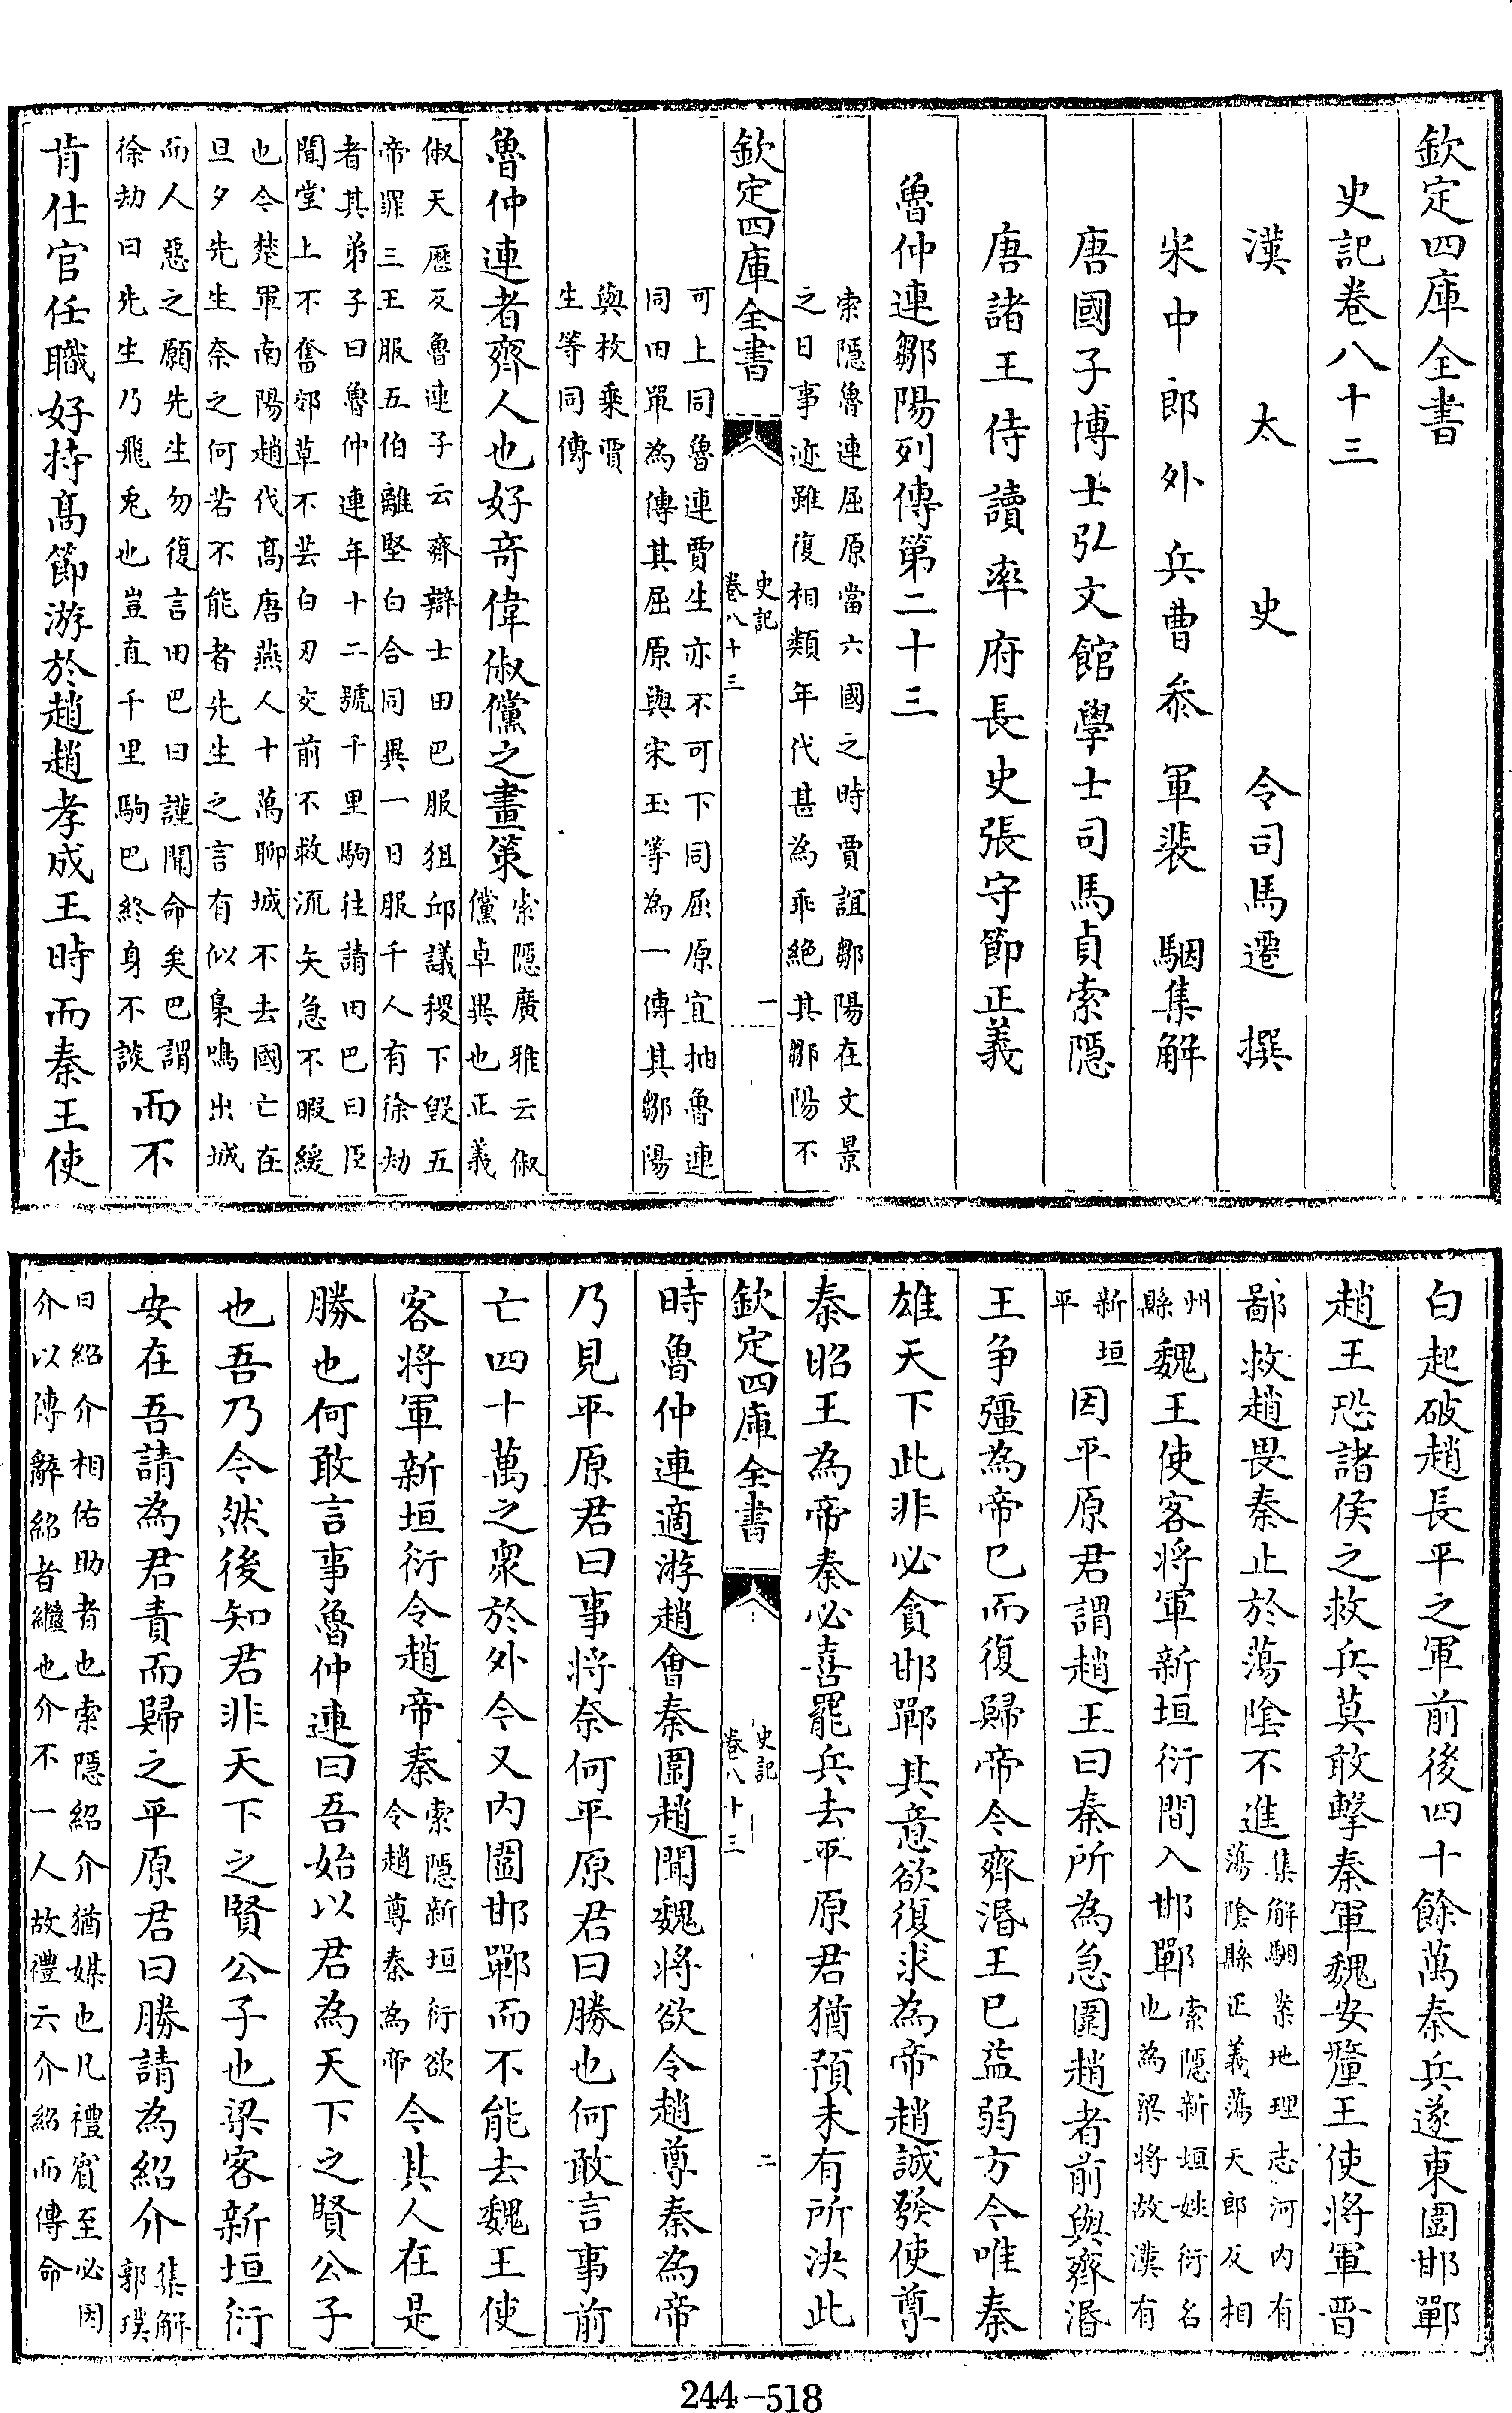 欽定四庫全書
史記卷八十三
漢太史令司馬遷撰
宋中郎外兵曹參軍裴駰集解
唐國子博士弘文館學士司馬貞索隱
唐諸王侍讀率府長史張守節正義
魯仲連鄒陽列傳第二十三
索隱魯連屈原當六國之時賈誼鄒陽在文景
之日事迹雖復相類年代甚為乖絶其鄒陽不
欽定四庫全書
史記
卷八十三
一
可上同魯連賈生亦不可下同屈原宜抽魯連
同田單為傳其屈原與宋玉等為一傳其鄒陽
與枚乘賈
生等同傳
魯仲連者齊人也好竒偉俶儻之畫策
索隱廣雅云俶
儻卓異也正義
俶天厯反魯連子云齊辯士田巴服狙邱議稷下毀五
帝罪三王服五伯離堅白合同異一日服千人有徐劫
者其弟子曰魯仲連年十二號千里駒往請田巴曰臣
聞堂上不奮郊草不芸白刃交前不救流矢急不暇緩
也今楚軍南陽趙伐髙唐燕人十萬聊城不去國亡在
旦夕先生奈之何若不能者先生之言有似梟鳴出城
而人惡之願先生勿復言田巴曰謹聞命矣巴謂
徐劫曰先生乃飛兎也豈直千里駒巴終身不談
而不
肯仕官任職好持髙節游於趙趙孝成王時而秦王使
白起破趙長平之軍前後四十餘萬秦兵遂東圍邯鄲
趙王恐諸侯之救兵莫敢擊秦軍魏安釐王使將軍晉
鄙救趙畏秦止於蕩隂不進
集解駰案地理志河内有
蕩隂縣正義蕩天郎反相
州
縣
魏王使客將軍新垣衍間入邯鄲
索隱新垣姓衍名
也為梁將故漢有
新垣
平
因平原君謂趙王曰秦所為急圍趙者前與齊湣
王争彊為帝已而復歸帝今齊湣王已益弱方今唯秦
雄天下此非必貪邯鄲其意欲復求為帝趙誠發使尊
秦昭王為帝秦必喜罷兵去平原君猶預未有所決此
欽定四庫全書
史記
卷八十三
二
時魯仲連適游趙會秦圍趙聞魏將欲令趙尊秦為帝
乃見平原君曰事將奈何平原君曰勝也何敢言事前
亡四十萬之衆於外今又内圍邯鄲而不能去魏王使
客將軍新垣衍令趙帝秦
索隱新垣衍欲
令趙尊秦為帝
今其人在是
勝也何敢言事魯仲連曰吾始以君為天下之賢公子
也吾乃今然後知君非天下之賢公子也梁客新垣衍
安在吾請為君責而歸之平原君曰勝請為紹介
集解
郭璞
曰紹介相佑助者也索隱紹介猶媒也凡禮賓至必因
介以傳辭紹者繼也介不一人故禮云介紹而傳命
244-518